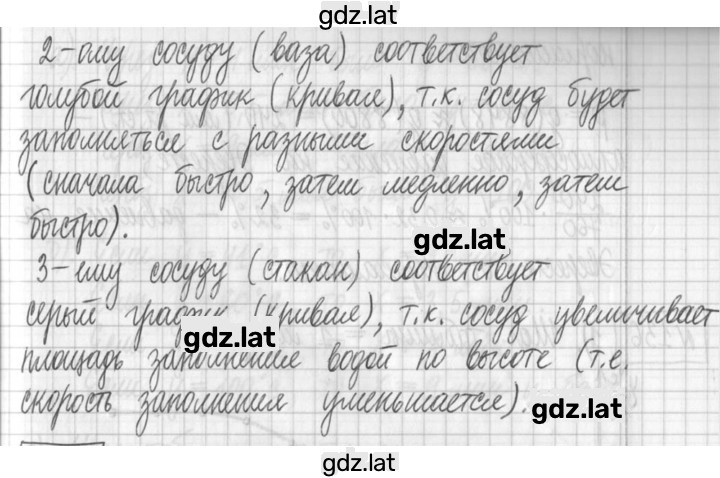 gdz.lat
2-ому сосуду (ваза) соответствует
голубой график (кривая), т.к. сосуд будет
заполняться с разными скоростями
(сначала быстро, затем медленно, затем
быстро).
gdz.lat
3-ему сосуду (стакан) соответствует
серый график (кривая), т.к. сосуд увеличивает
gdz.lat
площадь заполнения водой по высоте (т.е.
скорость заполнения уменьшается).
gdz.lat
gdz.lat